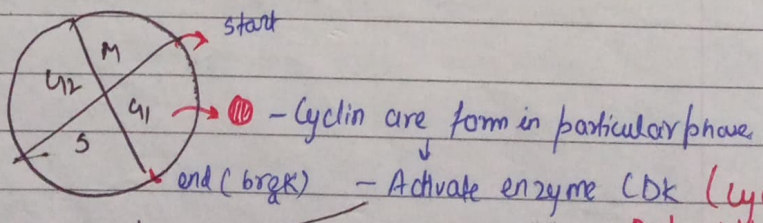 start
M
G2
G1
- Cyclin are form in particular phase
S
end (break) - Activate enzyme CDK (cy